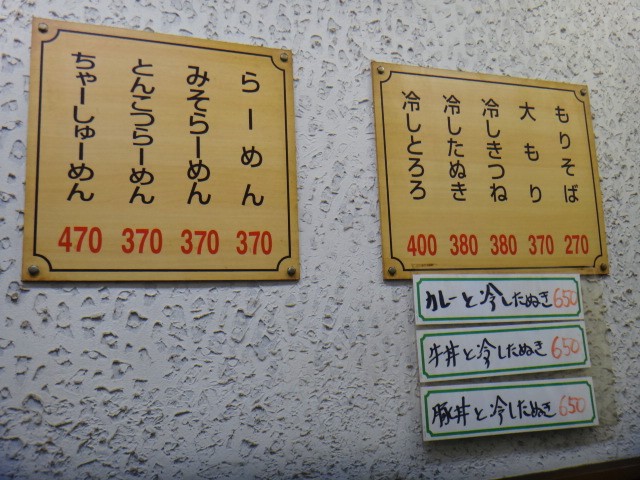 らーめん 370
みそらーめん 370
とんこつらーめん 370
ちゃーしゅーめん 470
もりそば 270
大もり 370
冷しきつね 380
冷したぬき 380
冷しとろろ 400
カレーと冷したぬき 650
牛丼と冷したぬき 650
豚丼と冷したぬき 650